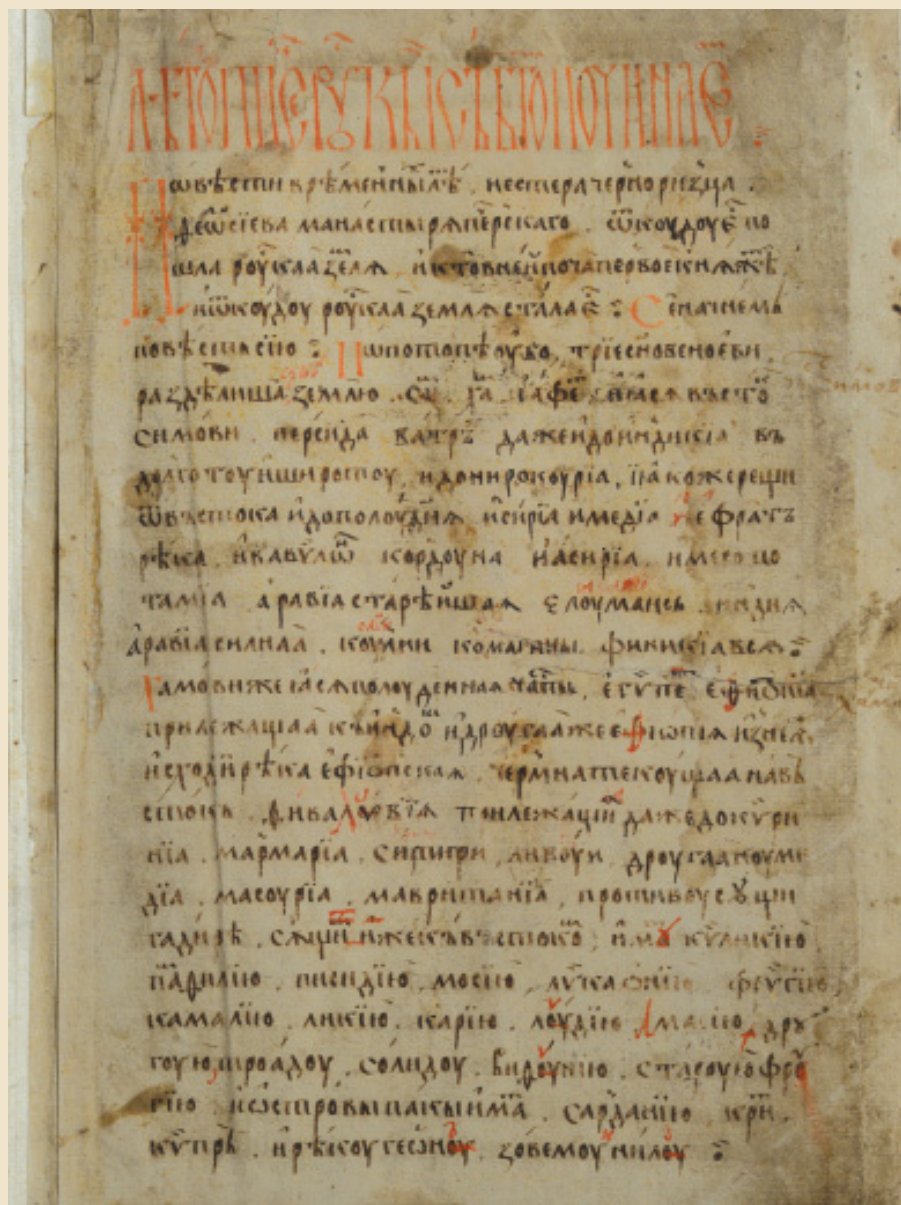 ЛѢТОПИСЕЦЬ РꙊКЫИ СЪ БГОⷨ ПОЧИНАЕⷨ
Повѣсти времѧнны лѣⷮ . нестера черноризца .
ѳедѡсїева манастырѧ печерьскаго . ѿкоудоу есⷮ по
шла роуⷭкаꙗ землѧ . и кто в неи поча первое кнѧжⷮѣ
и ѿкоудоу роуⷭкаꙗ землѧ стала еⷭ : Се начнемь
повѣсть сїю : По потопѣ оубо . трїе сн҃ове ноеви
раздѣлиша землю . Сиⷨ . Хаⷨ . Іафеⷮ . и ꙗсѧ въстоⷦ
симови . персида ватрь даже и до индикїа въ
долготоу и широтоу . и до нирокоурїа . ꙗкоже рещи
ѿ въстока и до полоуднѧ . и сирїа и медїа . и ефратъ
рѣка . и вавулѡⷩ кордоуна . и асирїа . и месопо
тамїа аравїа старѣишаꙗ елоумаись . индиꙗ
аравїа силнаа . коулии комагины . финикїа всѧ :
Хамови же ꙗсѧ полоуденнаꙗ часть . егупеⷮ . ефиѡпїа
прилежащаа къ индоⷨ . и дроугаа же ефиопїа . из неѧже
исходи рѣка ефиѡпьскаа . чермна текоущаа на въ
стокъ . фива . лоувїꙗ прилежащи даже до курн
нїа . мармарїа . сирити . ливоуи . дроугаа ноуми
дїа . масоурїа . мавританїа . противоу сꙋщи
гадирѣ . сущиⷨ иже къ въстокоⷨ . имаⷮ кулнкїю
памфилїю . писидїю . мосїю . лукаонїю . фругїю
камалїю . ликїю . карїю . лоудїю . масїю . дрꙋ
гоую троадоу . солидоу . виѳоунїю . староую фрѹ
гїю . и островы пакы имаⷮ . сарданїю . криⷮ .
купръ . и рѣкоу геѡноу . зовемоую нилоу :